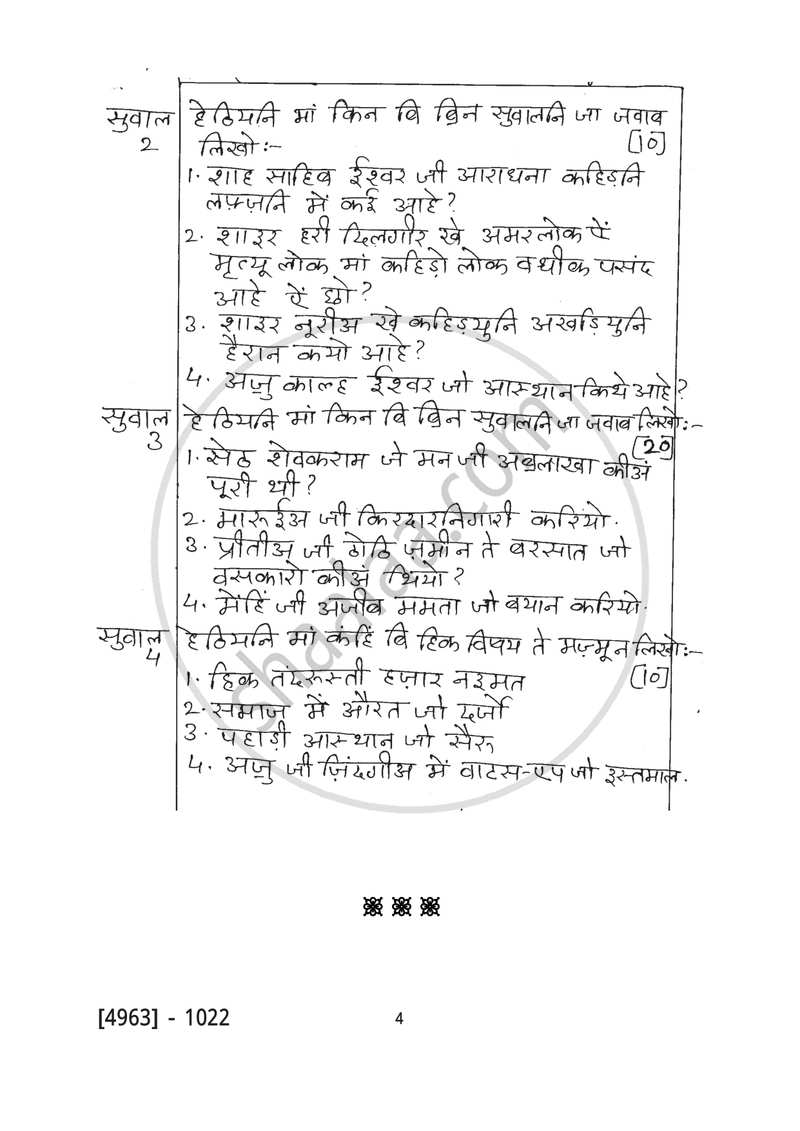 सुवाल हेठियनि मां किन बि ॿिन सुवालनि जा जवाब
2 लिखो:- [10]
1. शाह साहिब ईश्वर जी आराधना कहिड़नि
लफ़्ज़नि में कई आहे?
2. शाइर हरी दिलगीर खे अमरलोक ऐं
मृत्यू लोक मां कहिड़ो लोक वधीक पसंद
आहे ऐं छो?
3. शाइर नूरीअ खे कहिड़युनि अखड़ियुनि
हैरान कयो आहे?
4. अॼु काल्ह ईश्वर जो आस्थान किथे आहे?
सुवाल हेठियनि मां किन बि ॿिन सुवालनि जा जवाब लिखो:-
3 [20]
1. सेठ शेवकराम जे मन जी अभलाखा कीअं
पूरी थी?
2. मारूईअ जी किरदारनिगारी करियो.
3. प्रीतीअ जी ठोठि ज़मीन ते बरसात जो
वसकारो कीअं थियो?
4. मेंहिं जी अजीब ममता जो बयान करियो.
सुवाल हेठियनि मां कंहिं बि हिक विषय ते मज़्मून लिखो:-
4 [10]
1. हिक तंदरूस्ती हज़ार नइमत
2. समाज में औरत जो दर्जो
3. पहाड़ी आस्थान जो सैरू
4. अॼु जी ज़िंदगीअ में वाटस-एप जो इस्तमाल.
shaalaa.com
[4963] - 1022 4